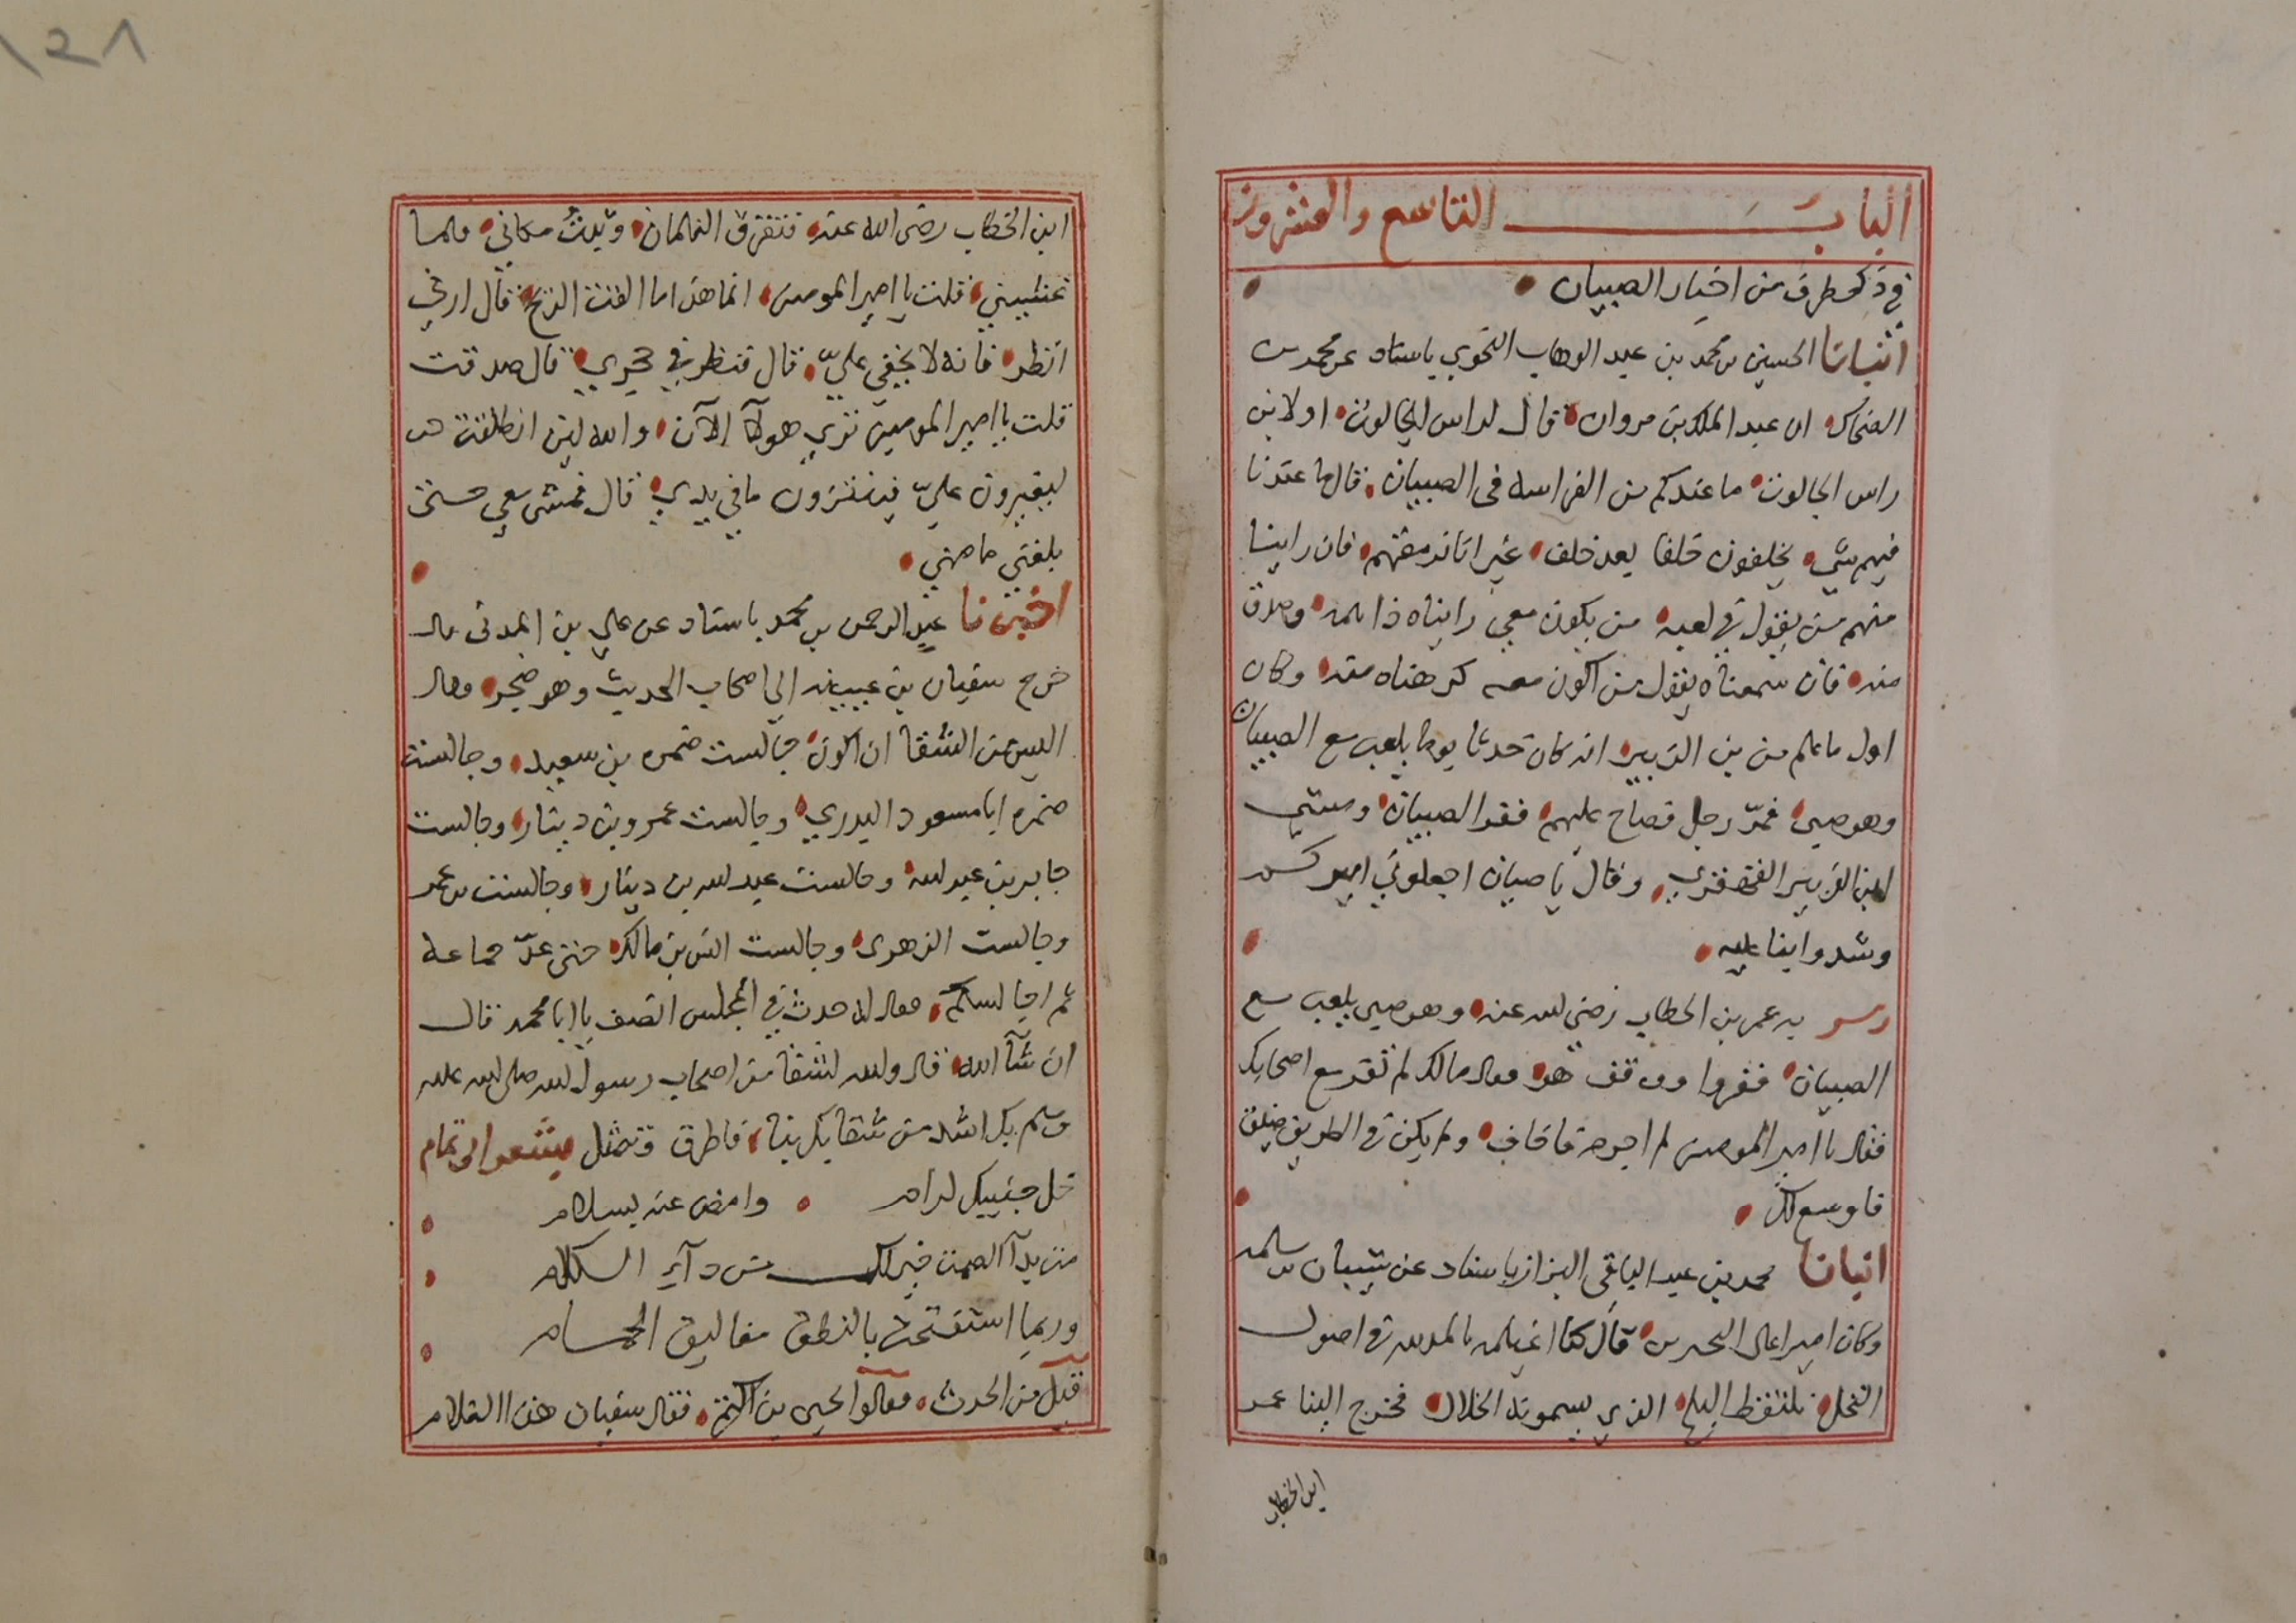 البابَ التاسع والعشرون
في ذكر طرف من اخبار الصبيان
انبانا الحسين بن محمد بن عبد الوهاب النحوي باسناد عن محمد بن
الضحاك ان عبد الملك بن مروان قال لراس الجالوت او لابن
راس الجالوت ما عندكم من الفراسه فى الصبيان قال ما عندنا
فيهم شي يخلفون خلفا بعد خلف غير انا نرمقهم فان راينا
منهم من يقول في لعبه من يكون معي رايناه ذا همه وصدق
منه فان سمعناه يقول من اكون معه كرهناه منه وكان
اول ما علم من بن الزبير انه كان حدثا يوما يلعب مع الصبيان
وهو صبي فمرّ رجل فصاح عليهم ففر الصبيان ومشي
ابن الزبير القهقري وقال يا صبيان اجعلوني اميركم
وشدوا بنا عليه
ومر به عمر بن الخطاب رضي الله عنه وهو صبي يلعب مع
الصبيان ففروا ووقف هو فقال مالك لم تفر مع اصحابك
فقال يا امير المومنين لم اجرم فاخاف ولم يكن في الطريق ضيق
فاوسع لك
انبانا محمد بن عبد الباقي البزاز باسناد عن سنان بن سلمه
وكان اميرا على البحرين قال كنا اغيلمه بالمدينه في اصول
النخل نلتقط البلح الذي يسمونه الخلال فخرج الينا عمر
ابن الخطاب
ابن الخطاب رضى الله عنه فتفرق الغلمان وثبتُ مكاني فلما
غشيني قلت يا امير المومنين انما هذا ما القت الريح قال ارني
انظر فانه لا يخفي عليّ قال فنظر في حجري قال صدقت
قلت يا امير المومنين تري هولآ الآن والله لين انطلقت
ليغيرون عليّ فينتزعون ما في يدي قال فمشى معي حتى
بلغني مامني
اخبرنا عبد الرحمن بن محمد باسناد عن علي بن المدنى قال
خرج سفيان بن عيينه الي اصحاب الحديث وهو ضجر وقال
اليس من الشقا ان اكون جالست ضمره بن سعيد وجالست
ضمره ابا سعيد الخدري وجالست عمرو بن دينار وجالست
جابر بن عبد الله وجالست عبد الله بن دينار وجالست بن عمر
وجالست الزهرى وجالست انس بن مالك حتى عدّ جماعة
ثم اجالسكم فقال له حدث في المجلس انصف يا ابا محمد قال
ان شآ الله قال والله لشقا من اصحاب رسول الله صلى الله عليه
وسلم بك اشد من شقايك بنا فاطرق وتمثل بشعر ابو تمام
خل جنبيك لرام وامض عنه بسلام
مت بدآ الصمت خير لك من دآء الكلام
وربما استفتحت بالنطق مغاليق الحمام
قيل من الحدث فقالوا يحيى بن اكثم فقال سفيان هذا الغلام